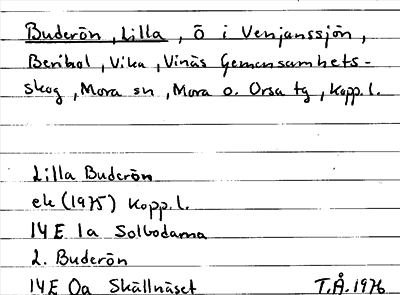 Buderön, Lilla, ö i Venjanssjön,
Beribol, Vika, Vinäs Gemensamhets-
skog, Mora sn, Mora o. Orsa tg, Kopp. l.
Lilla Buderön
ek (1975) Kopp. l.
14E 1a Solbodarna
L. Buderön
14E 0a Skällnäset T.Å. 1976